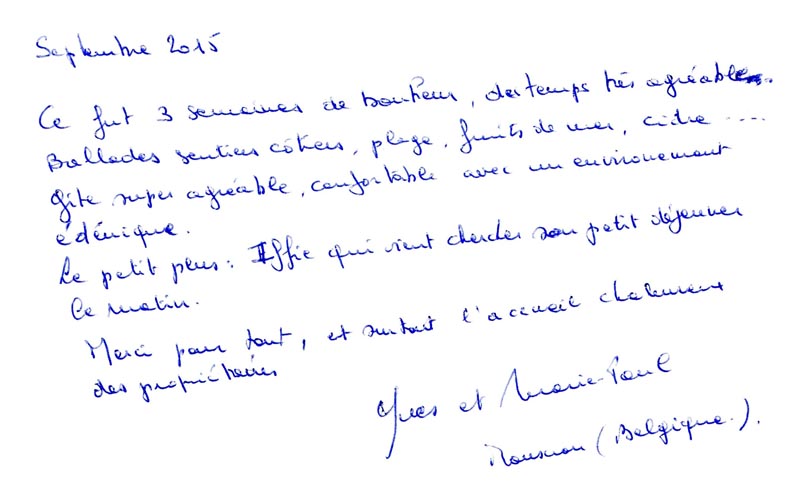 Septembre 2015
Ce fut 3 semaines de bonheur, des temps très agréables...
Ballades sentiers côtiers, plage, fruits de mer, cidre ....
Gîte super agréable, confortable avec un environement
édénique.
Le petit plus : Iffie qui vient chercher son petit déjeuner
le matin.
Merci pour tout, et surtout l'accueil chaleureux
des propriétaires
Yves et Marie-Paule
(Belgique.).